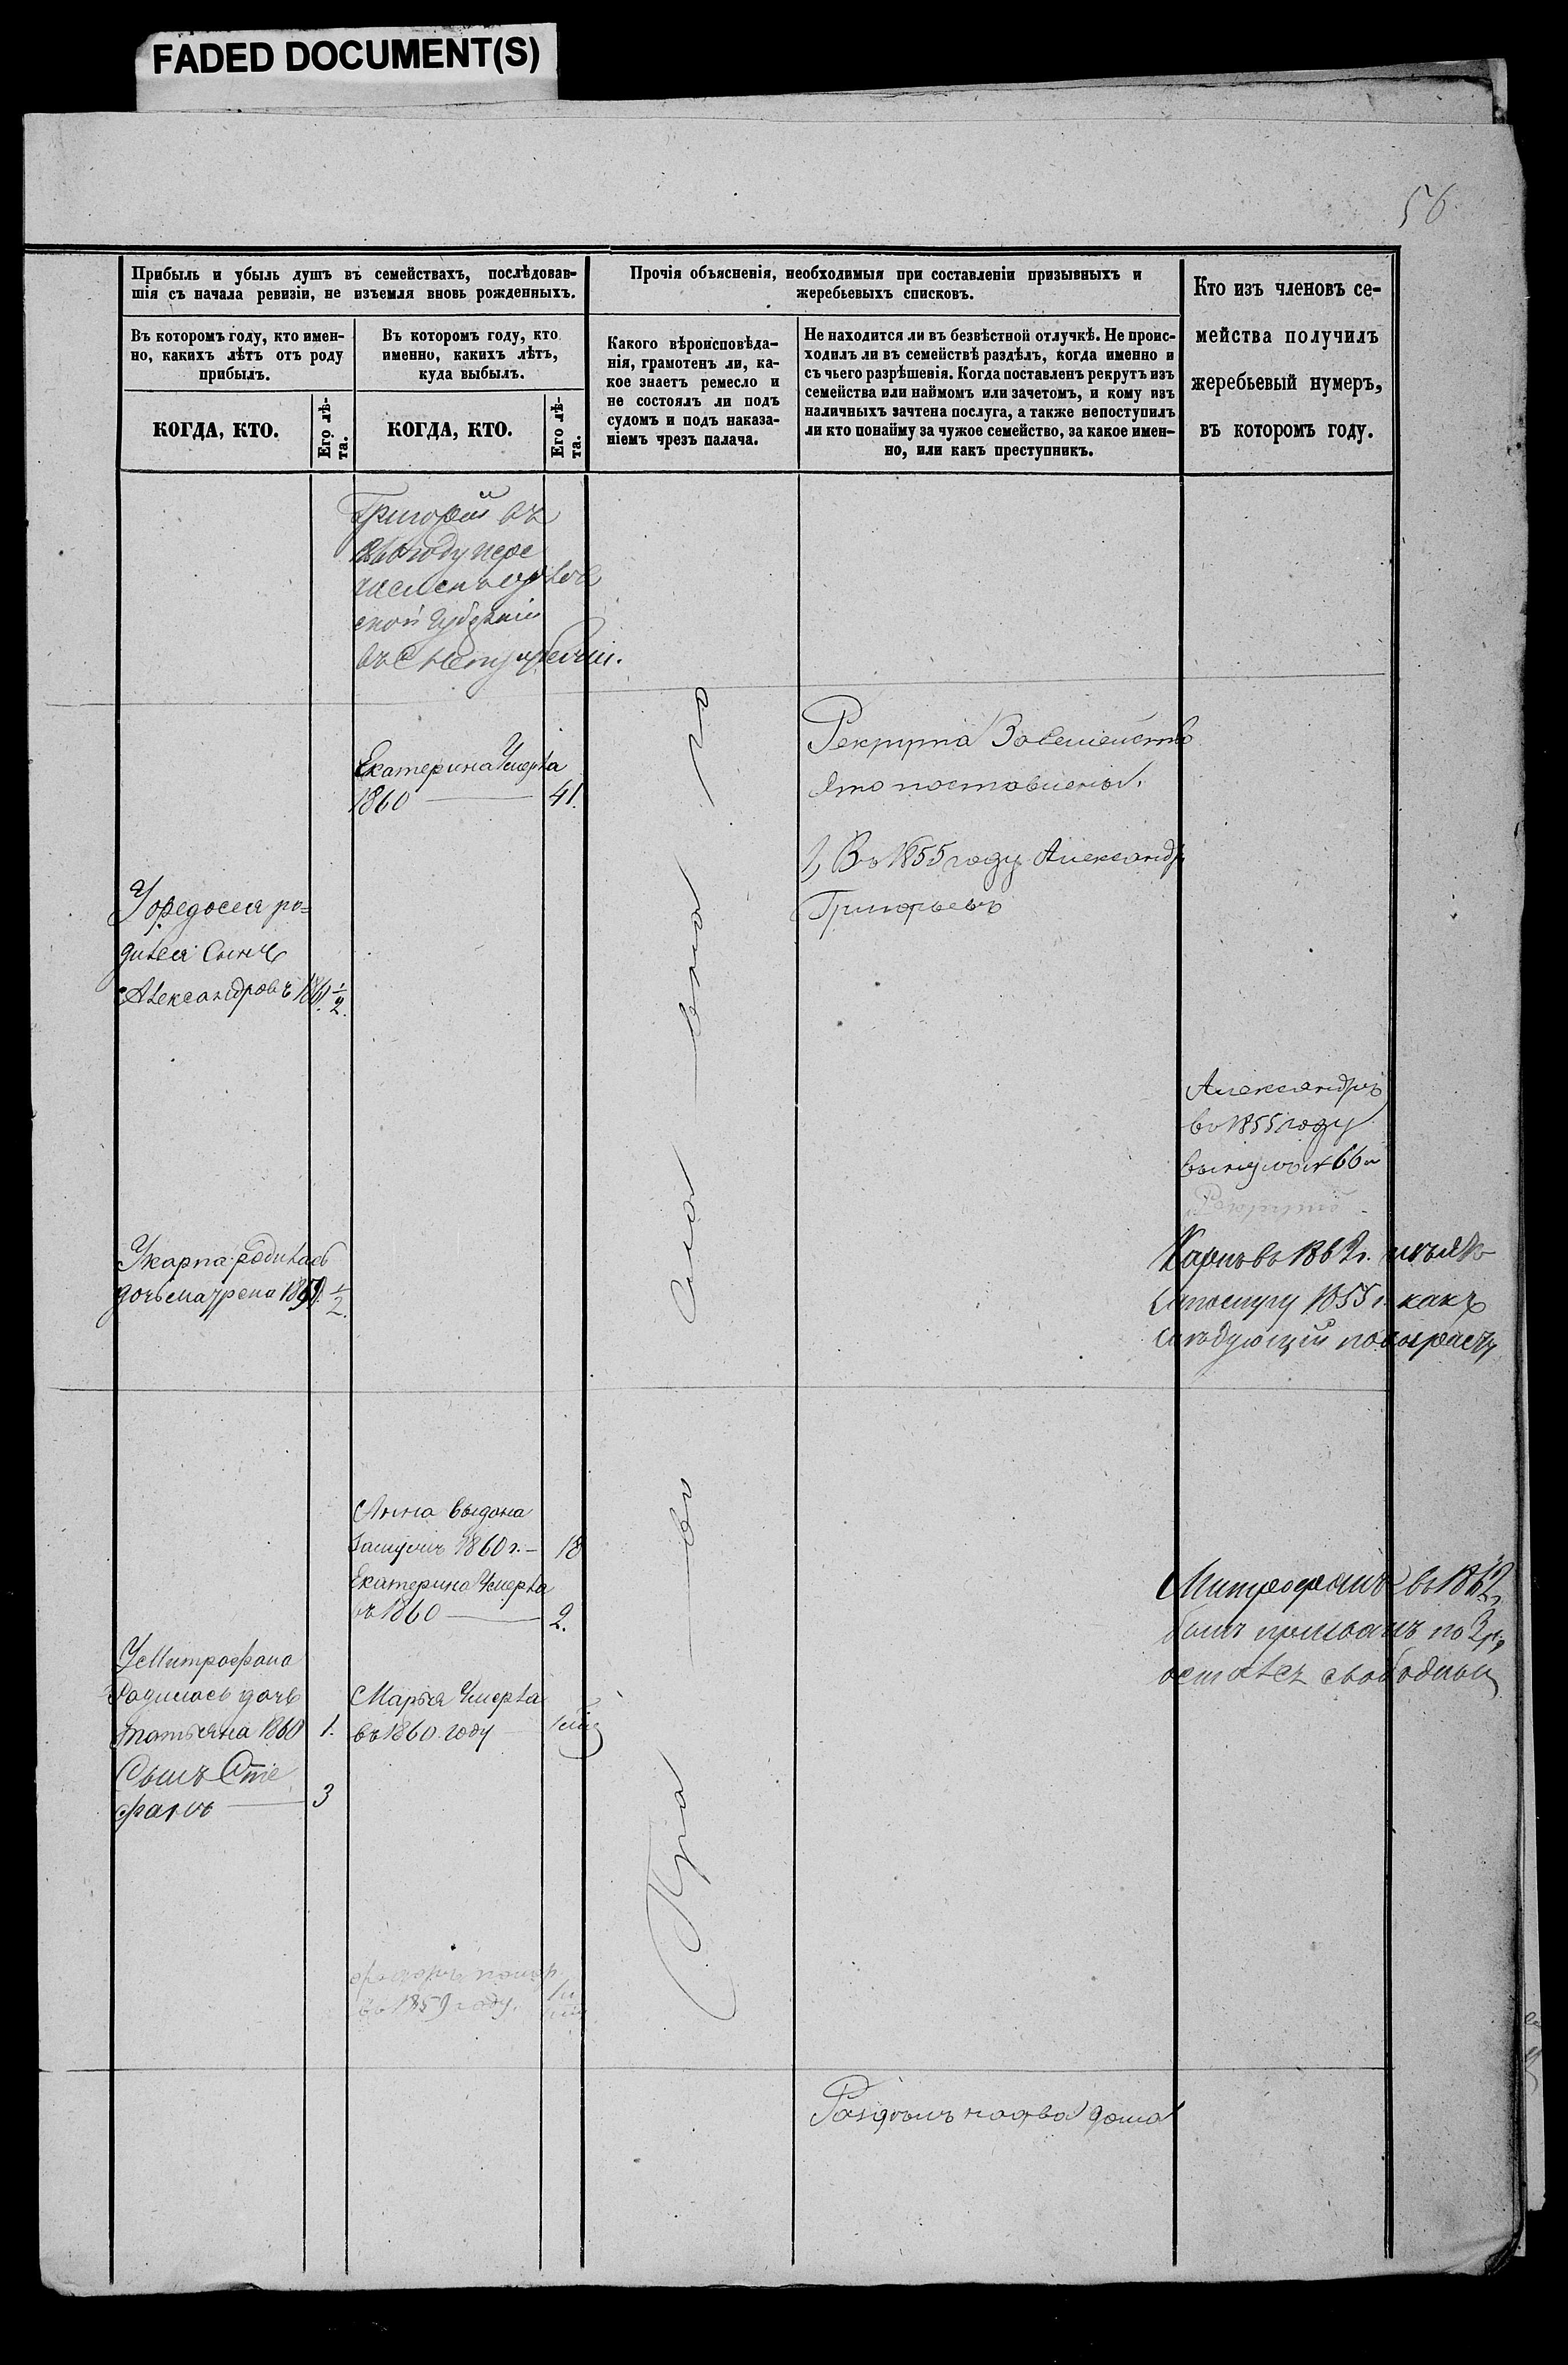 FADED DOCUMENT(S)
56
Прибыль и убыль душъ въ семействахъ, послѣдовав-
шія съ начала ревизіи, не изъемля вновь рожденныхъ.
Прочія объясненія, необходимыя при составленіи призывныхъ и
жеребьевыхъ списковъ.
Кто изъ членовъ се-
мейства получилъ
жеребьевый нумеръ,
въ которомъ году.
Въ которомъ году, кто имен-
но, какихъ лѣтъ отъ роду
прибылъ.
Въ которомъ году, кто
именно, какихъ лѣтъ,
куда выбылъ.
Какого вѣроисповѣда-
нія, грамотенъ ли, ка-
кое знаетъ ремесло и
не состоялъ ли подъ
судомъ и подъ наказа-
ніемъ чрезъ палача.
Не находится ли въ безвѣстной отлучкѣ. Не проис-
ходилъ ли въ семействѣ раздѣлъ, когда именно и
съ чьего разрѣшенія. Когда поставленъ рекрутъ изъ
семейства или наймомъ или зачетомъ, и кому изъ
наличныхъ зачтена послуга, а также непоступилъ
ли кто понайму за чужое семейство, за какое имен-
но, или какъ преступникъ.
КОГДА, КТО.
Его лѣ-
та.
КОГДА, КТО.
Его лѣ-
та.
Григорій въ
году пере
численъ
ской губерніи
въ
Екатерина Умерла
1860 — 41.
Рекрута За семейство
это поставлены.
1, Въ 1855 году Александръ
Григорьевъ
У Федосея ро-
дился Сынъ
Александровъ 1861 1/2.
Александръ
въ 1855 году
вынулъ № 66й
Рекрутъ
У Карпа родилась
дочь Мачрена 1859. 1/2.
Карпъ въ 1862 г.
послугу 1855 г. какъ
слѣдующій
Пра — во — сла — вна — го
Анна выдана
замужъ 1860 г. — 18
Екатерина Умерла
въ 1860 — 2.
Митрофанъ въ 1862 г.
былъ призванъ по
осталсъ свободным
У Митрофана
Родилась дочь
Татьяна 1860 1.
Сынъ Сте
фанъ — 3
Марья Умерла
въ 1860 году
помер.
въ 1859 году.
Раздѣлъ на два дома